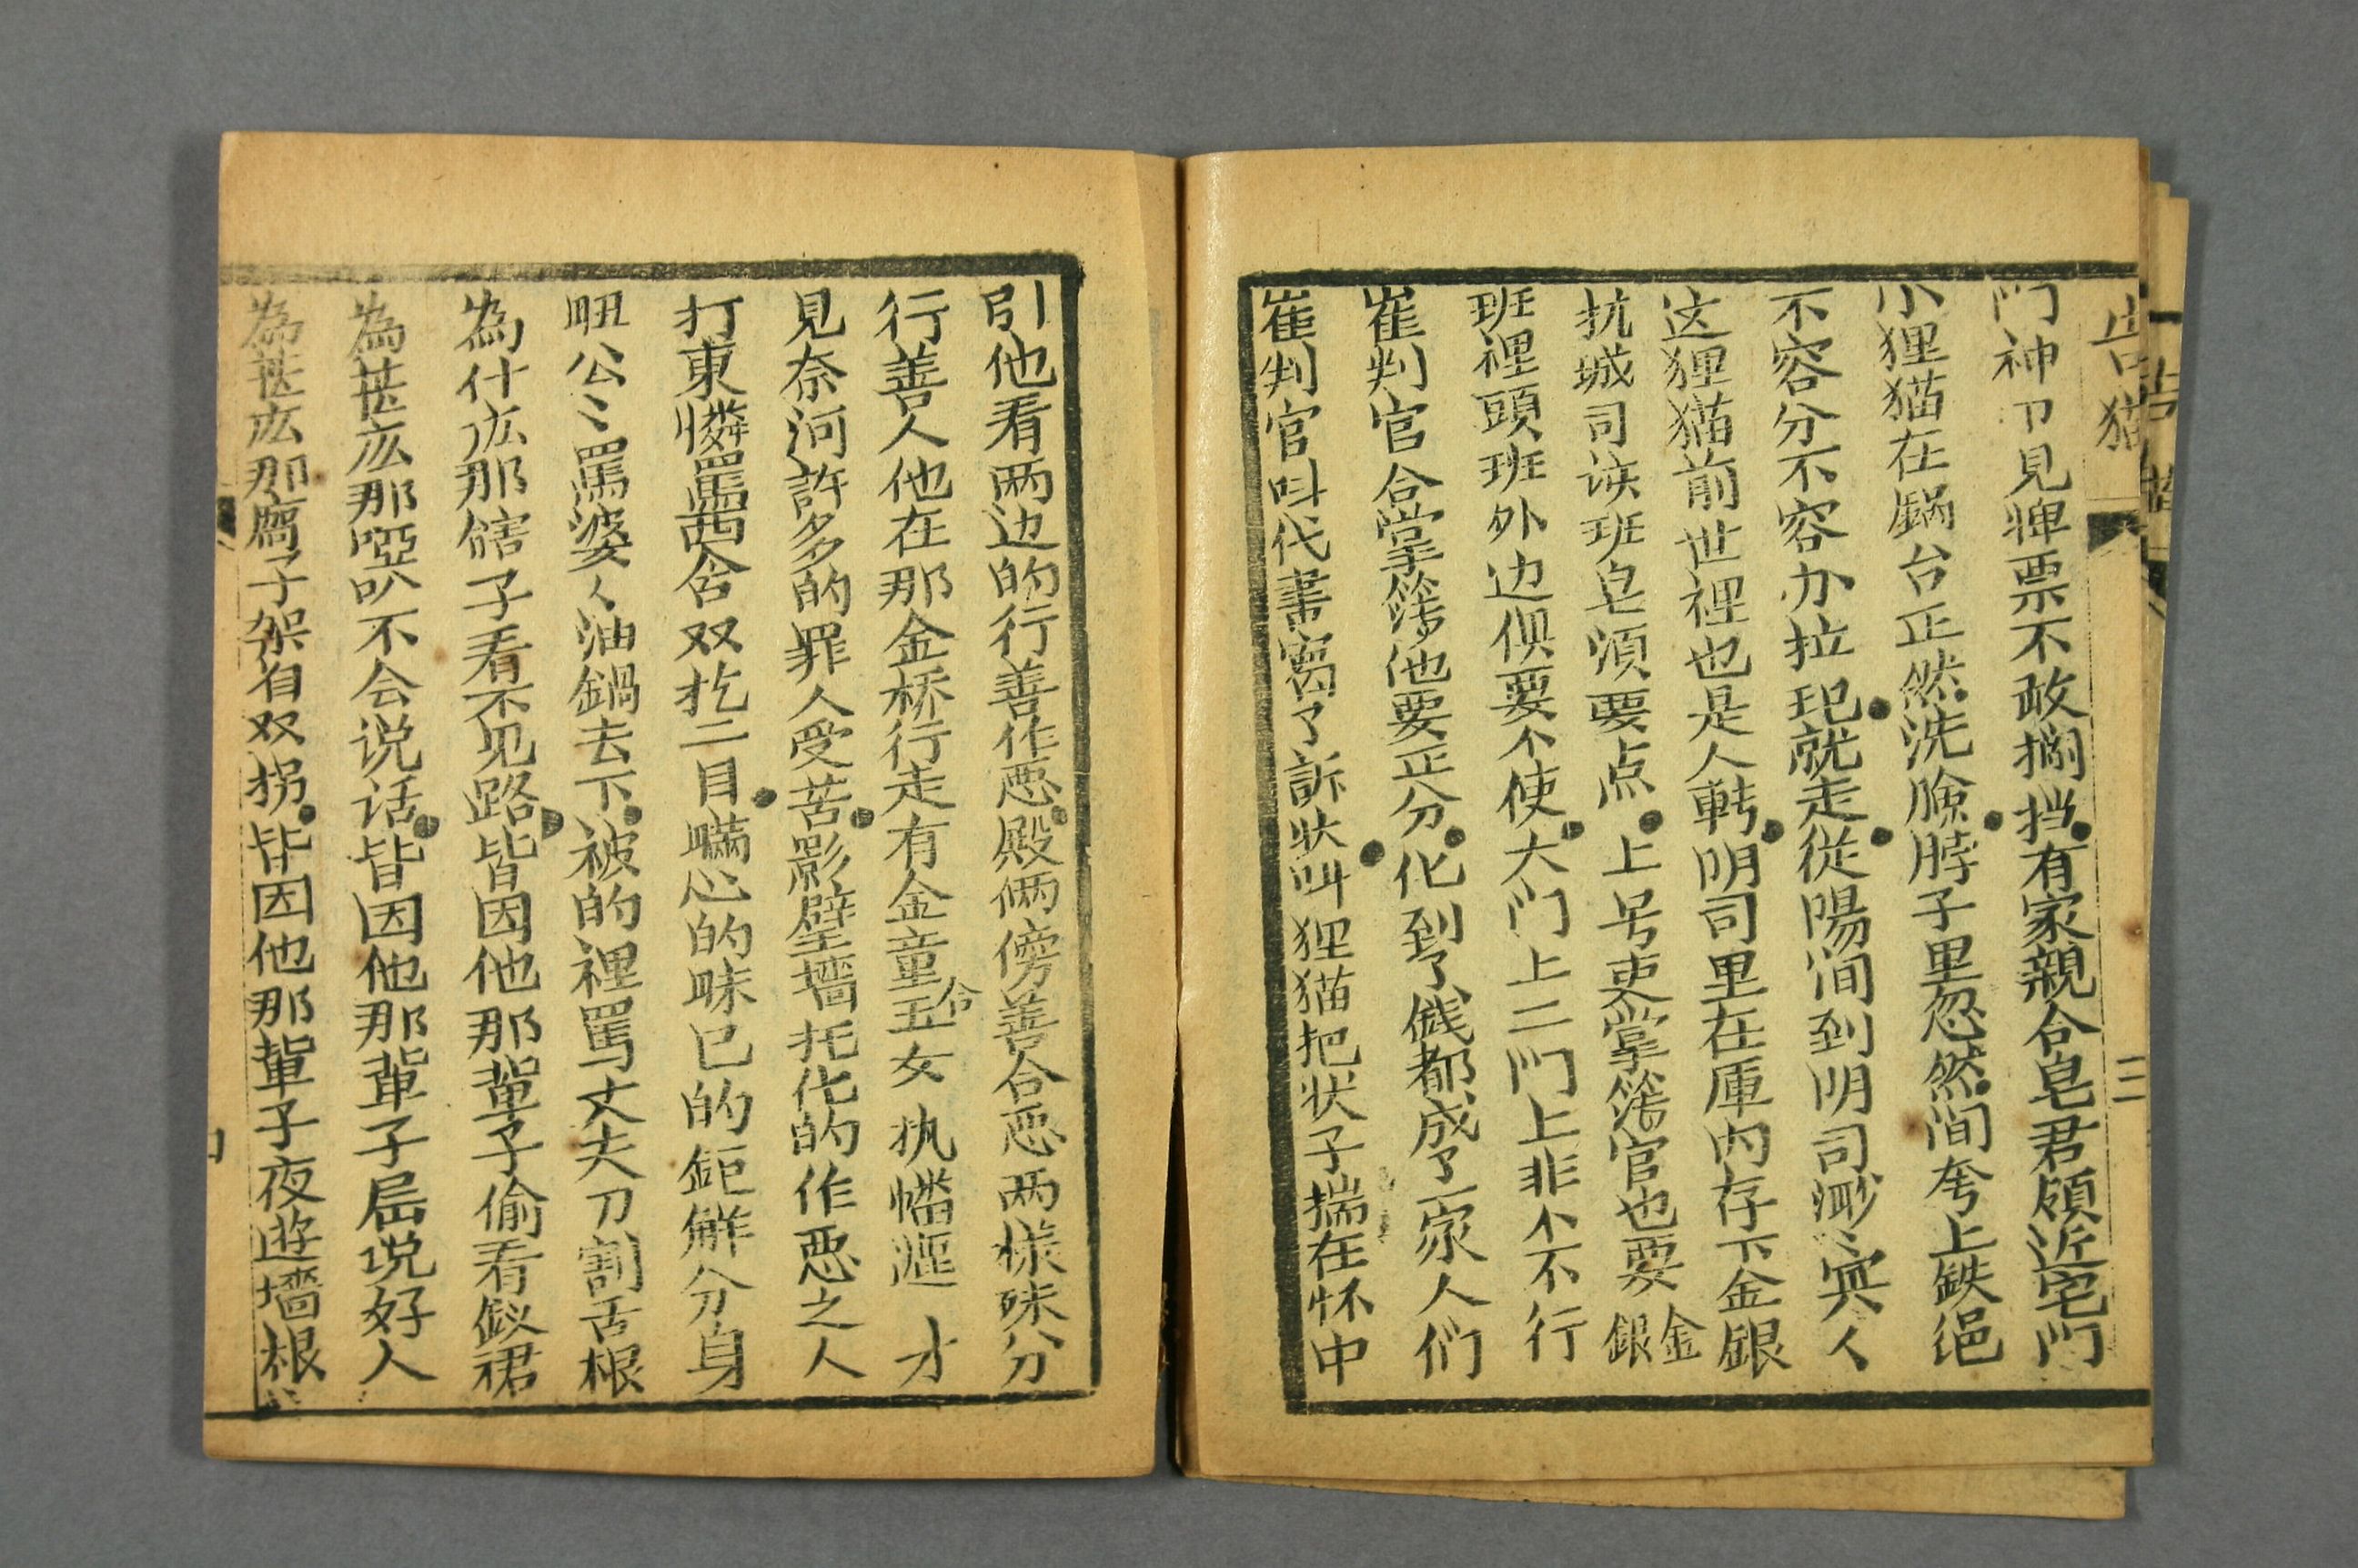 告猫
三
门神卩見牌票不敢搁挡有家親合皂君頗近宅门
小狸猫在鍋台正然洗臉脖子里忽然间夸上鉄绳
不容分不容办拉玘就走從陽间到明司渺〻寅人
这狸猫前世裡也是人転明司里在庫内存下金銀
抗城司诶班皂湏要点上号吏掌簿官也要金銀
班裡頭班外边俱要个使大门上二门上非个不行
崔判官合掌簿他要正分化到了餞都成了一家人们
崔判官呌代書寫了訴狀叫狸猫把状子揣在怀中
引他看两边的行善作恶殿俩傍善合恶两樣殊分
行善人他在那金桥行走有金童合玉女执幡涯才
見奈河許多的罪人受苦影壁墙托化的作惡之人
打東憐罵西舍双扢二目瞞心的昧已的鉅觧分身
䀔公〻罵婆〻油鍋去下被的裡罵丈夫刀割舌根
為什庅那瞎子看不见路皆因他那輩子偷看釵裙
為甚庅那啞叭不会说话皆因他那輩子屈说好人
為甚庅那腐子架自双拐皆因他那輩子夜遊墻根